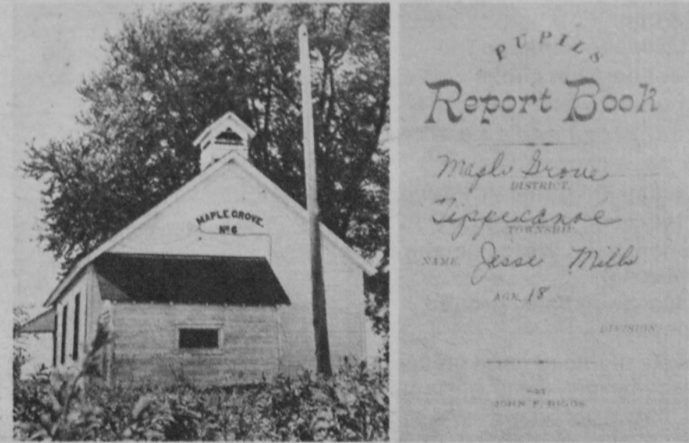 MAPLE GROVE
No 6
PUPILS
Report Book
Maple Grove
DISTRICT.
Tippecanoe
TOWNSHIP.
NAME, Jesse Mills
AGE, 18
DIVISION,
JOHN F.